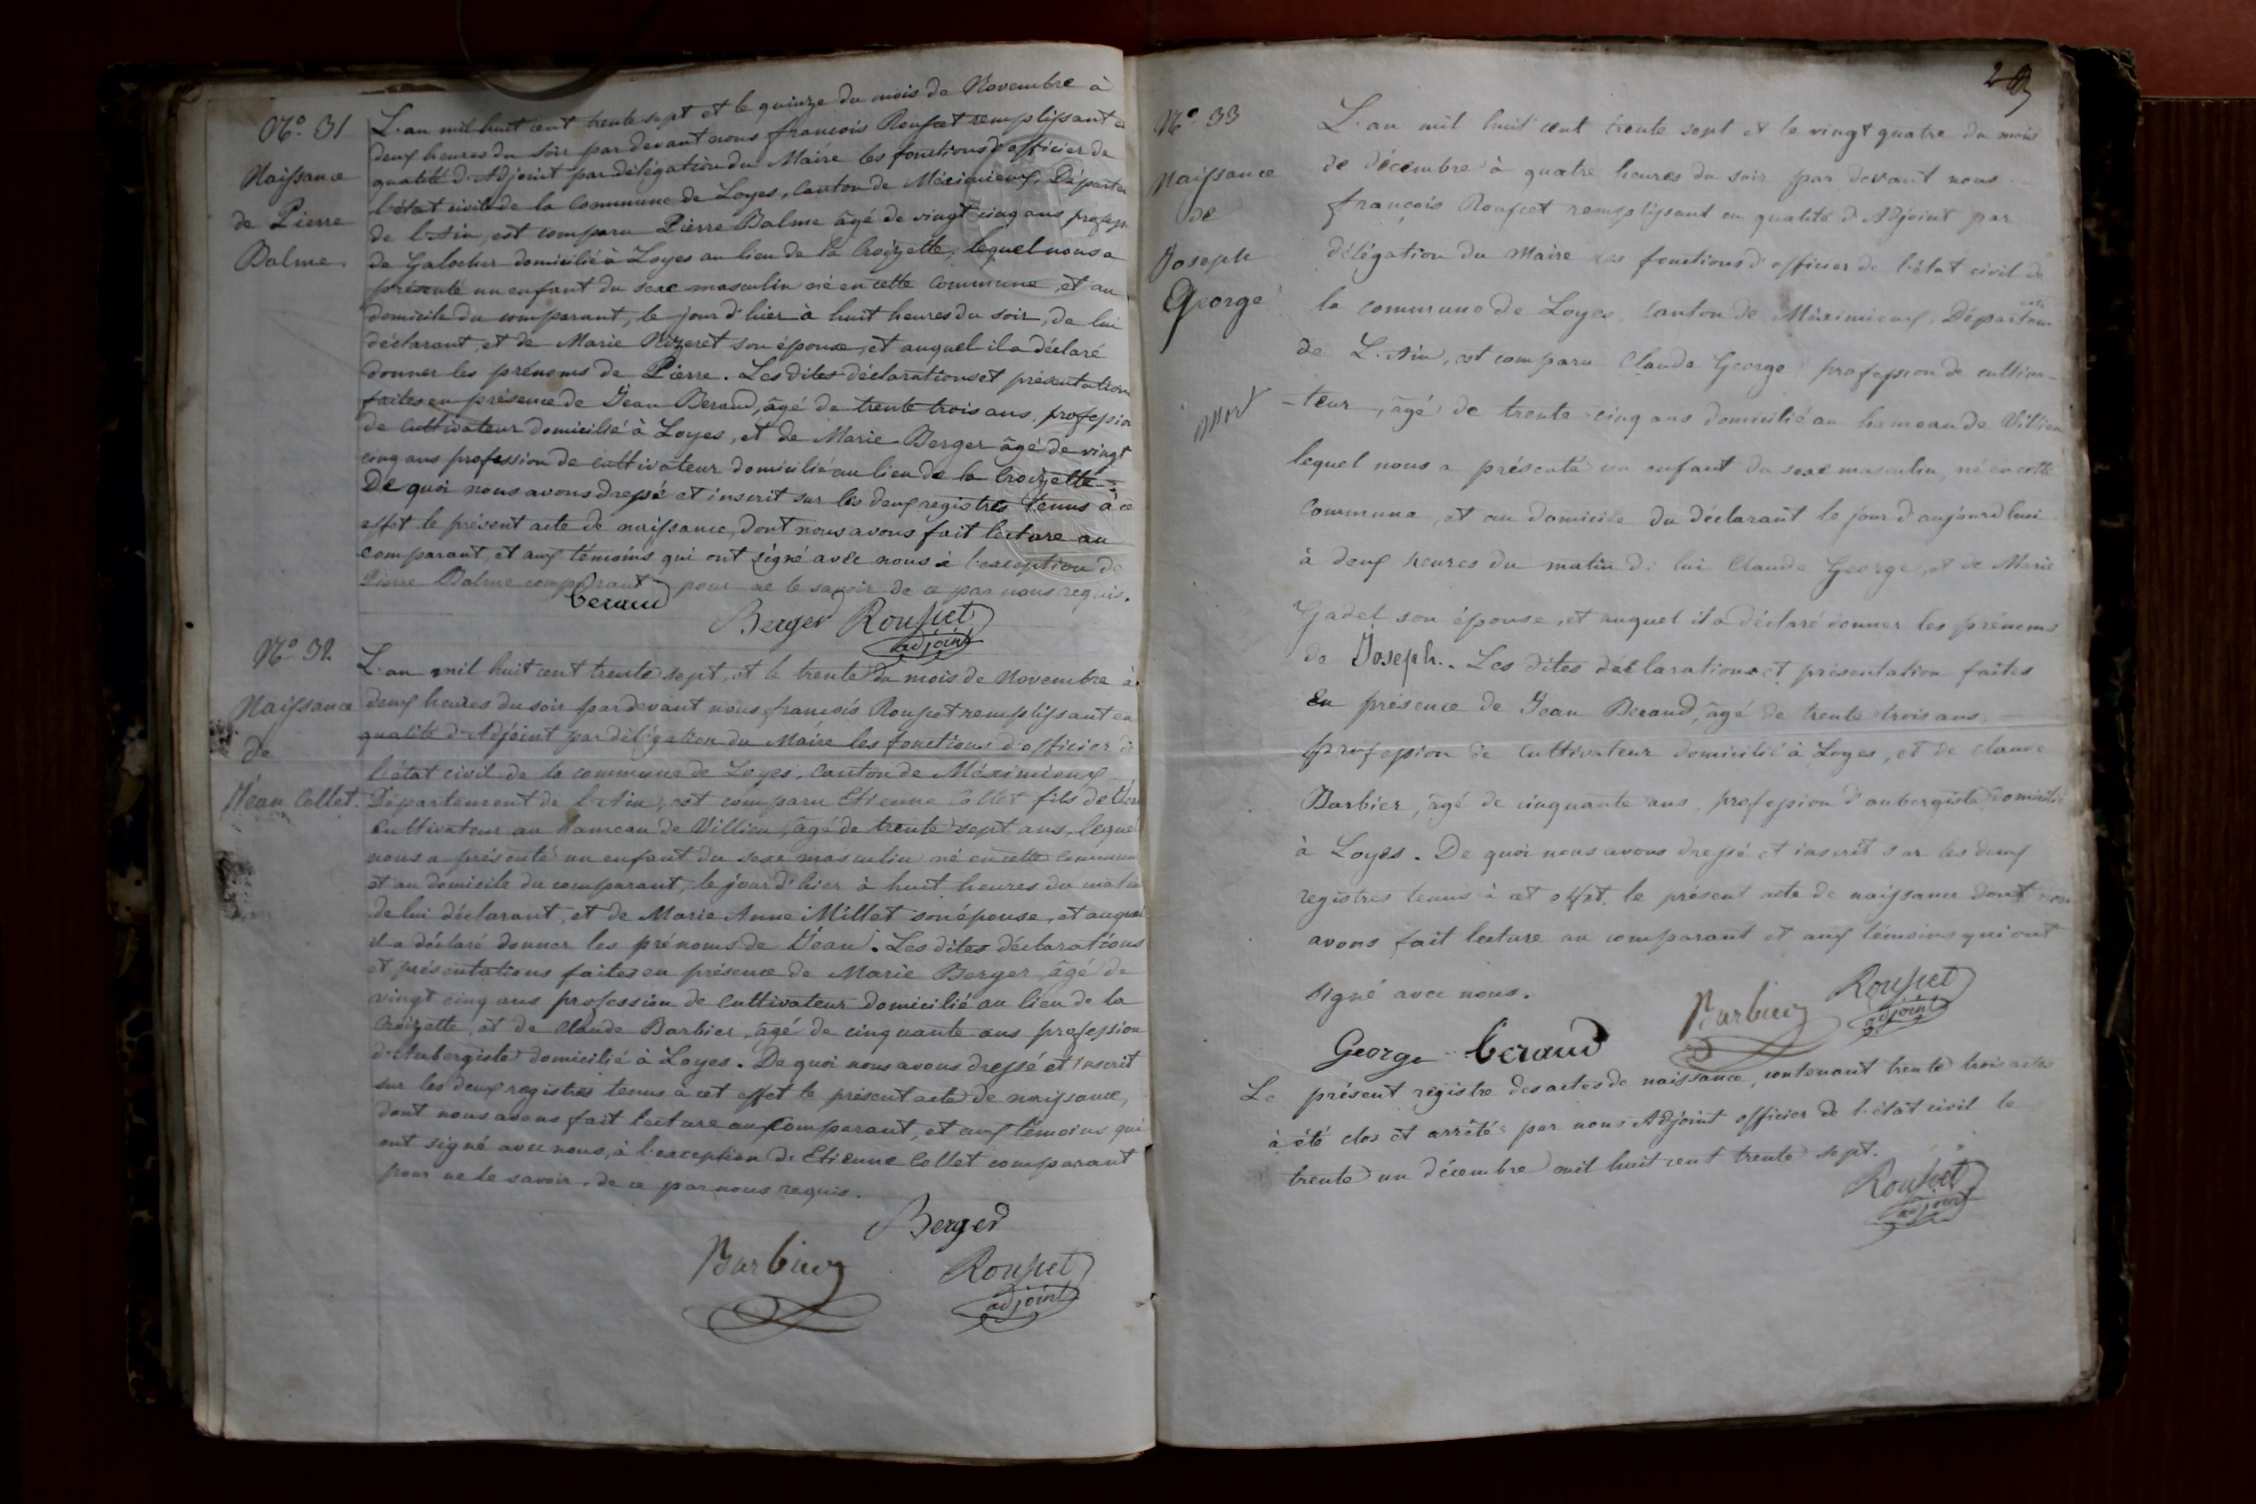 No. 31
Naissance
de Pierre
Balme.
L'an mil huit cent trente sept et le quinze du mois de Novembre à
deux heures du soir par devant nous françois Rousset remplissant en
qualité d'Adjoint par délégation du Maire les fonctions d'officier de
l'état civil de la Commune de Loyes, Canton de Méximieux, Départem
de l'Ain, est comparu Pierre Balme âgé de vingt cinq ans profess
de Galocher domicilié à Loyes au lieu de la Croizette, lequel nous a
présenté un enfant du sexe masculin né en cette Commune, et au
domicile du comparant, le jour d'hier à huit heures du soir, de lui
déclarant, et de Marie son épouse, et auquel il a déclaré
donner les prénoms de Pierre. Les dites déclarations et présentations
faites en présence de Jean Beraud, âgé de trente trois ans, profession
de cultivateur domicilié à Loyes, et de Marie Berger âgé de vingt
cinq ans profession de cultivateur domicilié au lieu de la Croizette
De quoi nous avons dressé et inscrit sur les deux registres tenus à ce
effet le présent acte de naissance, dont nous avons fait lecture au
comparant, et aux témoins qui ont signé avec nous à l'exception de
Pierre Balme comparant pour ne le savoir de ce par nous requis.
beraud
Berger Rousset
adjoint
No. 32
Naissance
de
Jean Collet.
L'an mil huit cent trente sept, et le trente du mois de Novembre à
deux heures du soir par devant nous françois Rousset remplissant en
qualité d'Adjoint par délégation du Maire les fonctions d'officier de
l'état civil de la commune de Loyes, Canton de Méximieux
Département de l'Ain, est comparu Etienne Collet fils de
Cultivateur au hameau de Villieu, âgé de trente sept ans, lequel
nous a présenté un enfant du sexe masculin né en cette commune
et au domicile du comparant, le jour d'hier à huit heures du matin
de lui déclarant, et de Marie Anne Millet son épouse, et auquel
il a déclaré donner les prénoms de Jean. Les dites déclarations
et présentations faites en présence de Marie Berger, âgé de
vingt cinq ans profession de Cultivateur domicilié au lieu de la
Croizette, et de Claude Barbier, âgé de cinquante ans profession
d'Aubergiste domicilié à Loyes. De quoi nous avons dressé et inscrit
sur les deux registres tenus à cet effet le présent acte de naissance,
dont nous avons fait lecture au Comparant, et aux témoins qui
ont signé avec nous, à l'exception de Etienne Collet comparant
pour ne le savoir, de ce par nous requis.
Berger
Barbier
Rousset
adjoint
No. 33
Naissance
de
Joseph
George
mort
L'an mil huit cent trente sept et le vingt quatre du mois
de décembre à quatre heures du soir par devant nous
françois Rousset remplissant en qualité d'Adjoint par
délégation du Maire les fonctions d'officier de l'état civil de
la commune de Loyes, Canton de Méximieux, Départem
de L'Ain, est comparu Claude George profession de cultiva-
-teur, âgé de trente cinq ans domicilié au hameau de Villieu
lequel nous a présenté un enfant du sexe masculin, né en cette
Commune, et au domicile du déclarant le jour d'aujourdhui
à deux heures du matin de lui Claude George, et de Marie
Gadel son épouse, et auquel il a déclaré donner les prénoms
de Joseph. Les dites déclarations et présentation faites
En présence de Jean Beraud, âgé de trente trois ans
profession de Cultivateur domicilié à Loyes, et de claude
Barbier, âgé de cinquante ans, profession d'aubergiste domicilié
à Loyes. De quoi nous avons dressé et inscrit sur les deux
registres tenus à cet effet, le présent acte de naissance dont nous
avons fait lecture au comparant et aux témoins qui ont
signé avec nous.
Barbier
Rousset
adjoint
George beraud
Le présent registre des actes de naissance, contenant trente trois actes
à été clos et arrêté par nous Adjoint officier de l'état civil le
trente un décembre mil huit cent trente sept.
Rousset
adjoint